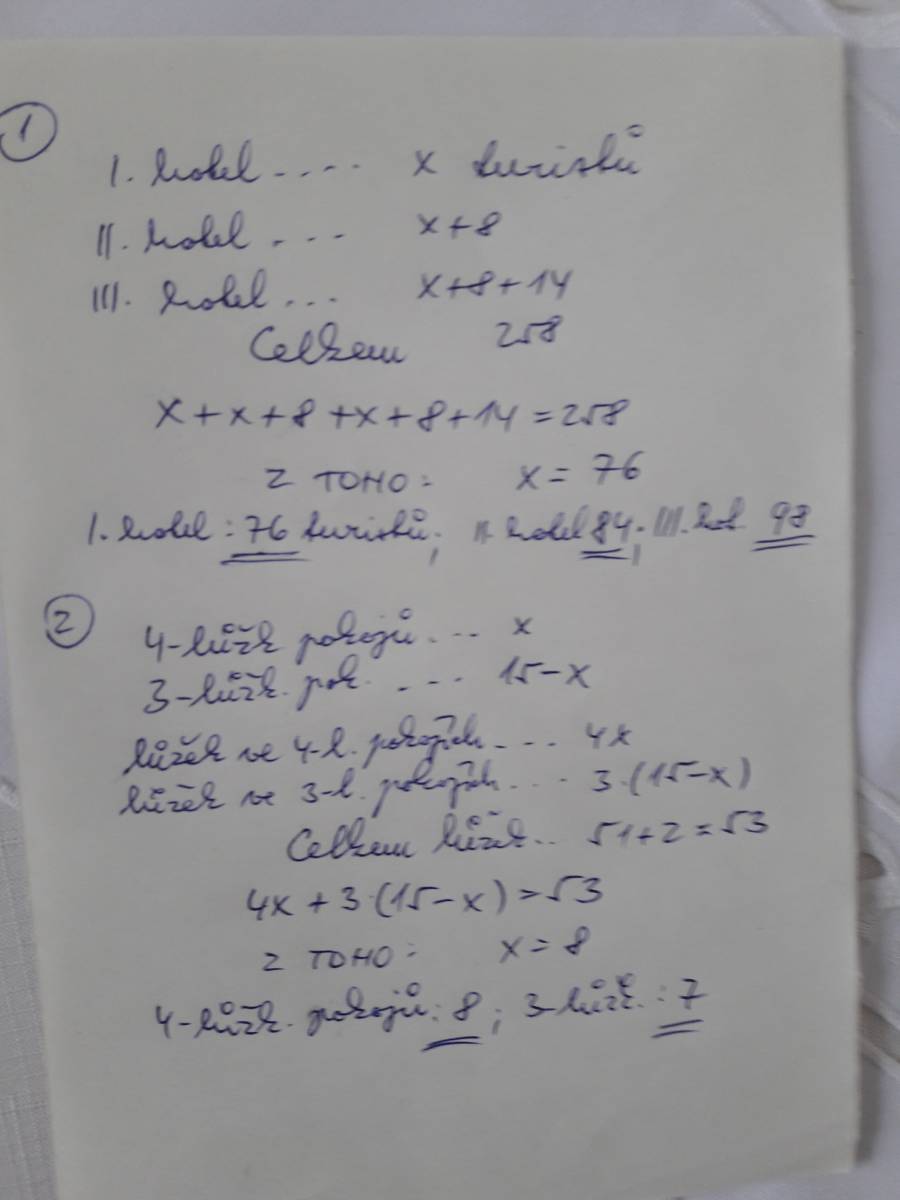 1
I. hotel .... x turistů
II. hotel ... x+8
III. hotel ... x+8+14
Celkem 258
x+x+8+x+8+14=258
z TOHO: x=76
I. hotel: 76 turistů; II. hotel 84; III. hot. 98
2
4-lůžk pokojů ... x
3-lůžk. pok. ... 15-x
lůžek ve 4-l. pokojích ... 4x
lůžek ve 3-l. pokojích ... 3·(15-x)
Celkem lůžek .. 51+2=53
4x+3·(15-x)=53
z TOHO: x=8
4-lůžk. pokojů: 8; 3-lůžk.: 7